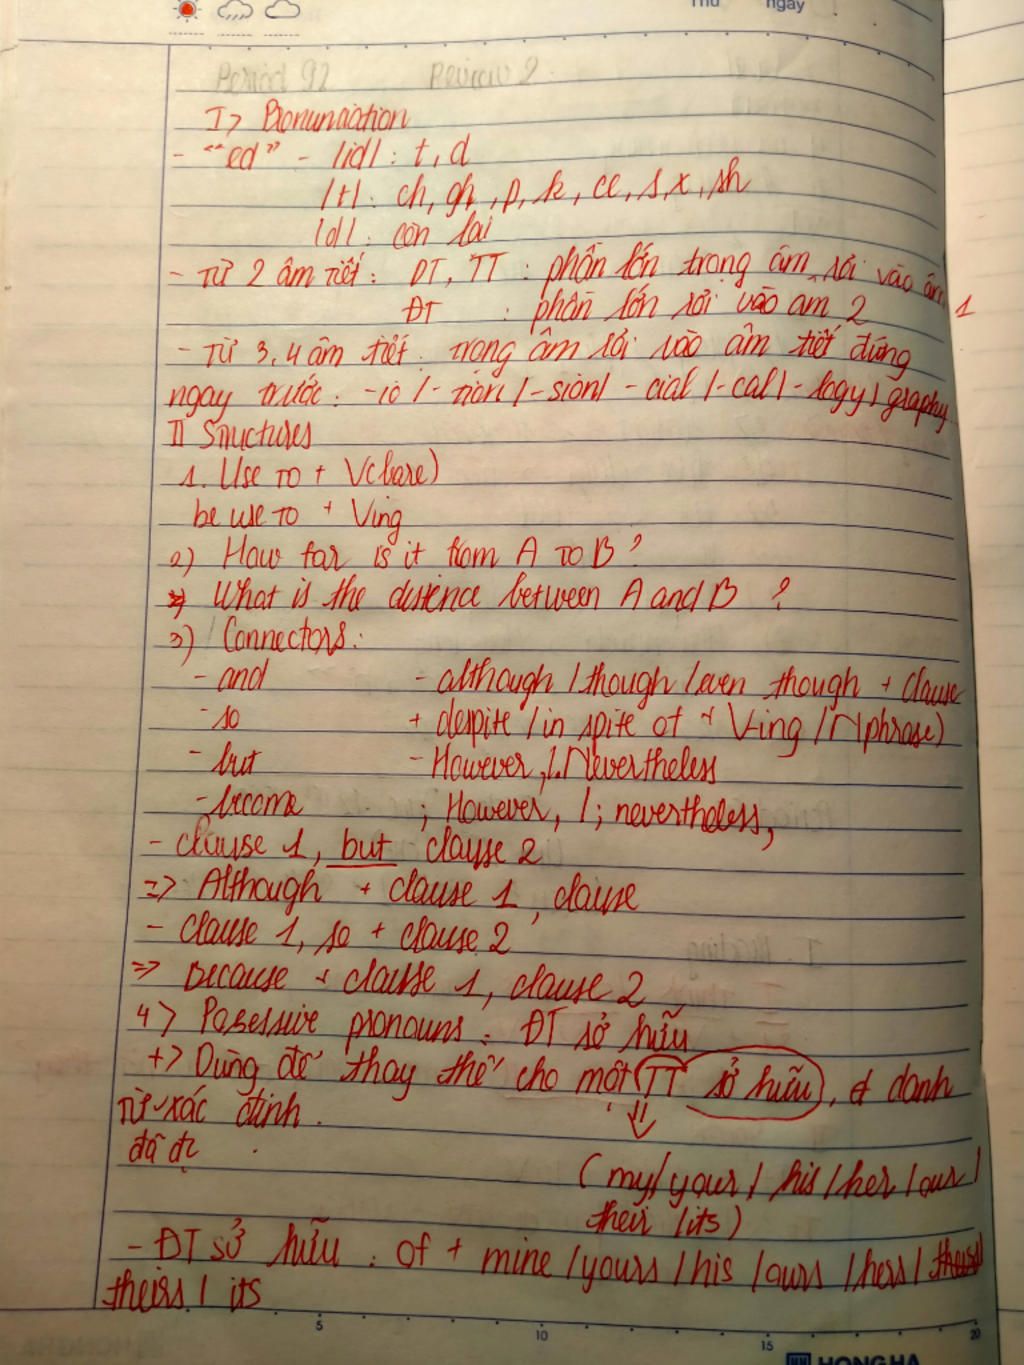 Thứ ngày
Period 92 Review 2
I> Pronunciation
- "ed" - /id/ : t, d
/t/ : ch, gh, p, k, ce, s, x, sh
/d/ : còn lại
- Từ 2 âm tiết : DT, TT : phần lớn trọng âm rơi vào âm 1
ĐT : phần lớn rơi vào âm 2
- Từ 3, 4 âm tiết : trọng âm rơi vào âm tiết đứng
ngay trước : -ic / -tion / -sion / -cial / -cal / -logy / graphy
II Structures
1. Use to + V(bare)
be use to + Ving
2) How far is it from A to B ?
What is the distence between A and B ?
3) Connectors :
- and - although / though / even though + clause
- so + despite / in spite of + V-ing / N(phrase)
- but - However, /. Nevertheless
- because ; However, / ; nevertheless,
- clause 1, but clause 2
=> Although + clause 1, clause
- clause 1, so + clause 2
=> Because + clause 1, clause 2
4> Possessive pronouns : ĐT sở hữu
+> Dùng để thay thế cho một TT sở hữu, & danh
từ xác định.
đã đc
( my / your / his / her / our /
their / its )
- ĐT sở hữu : of + mine / yours / his / ours / hers /
theirs / its
5 10 15 20
HONG HA